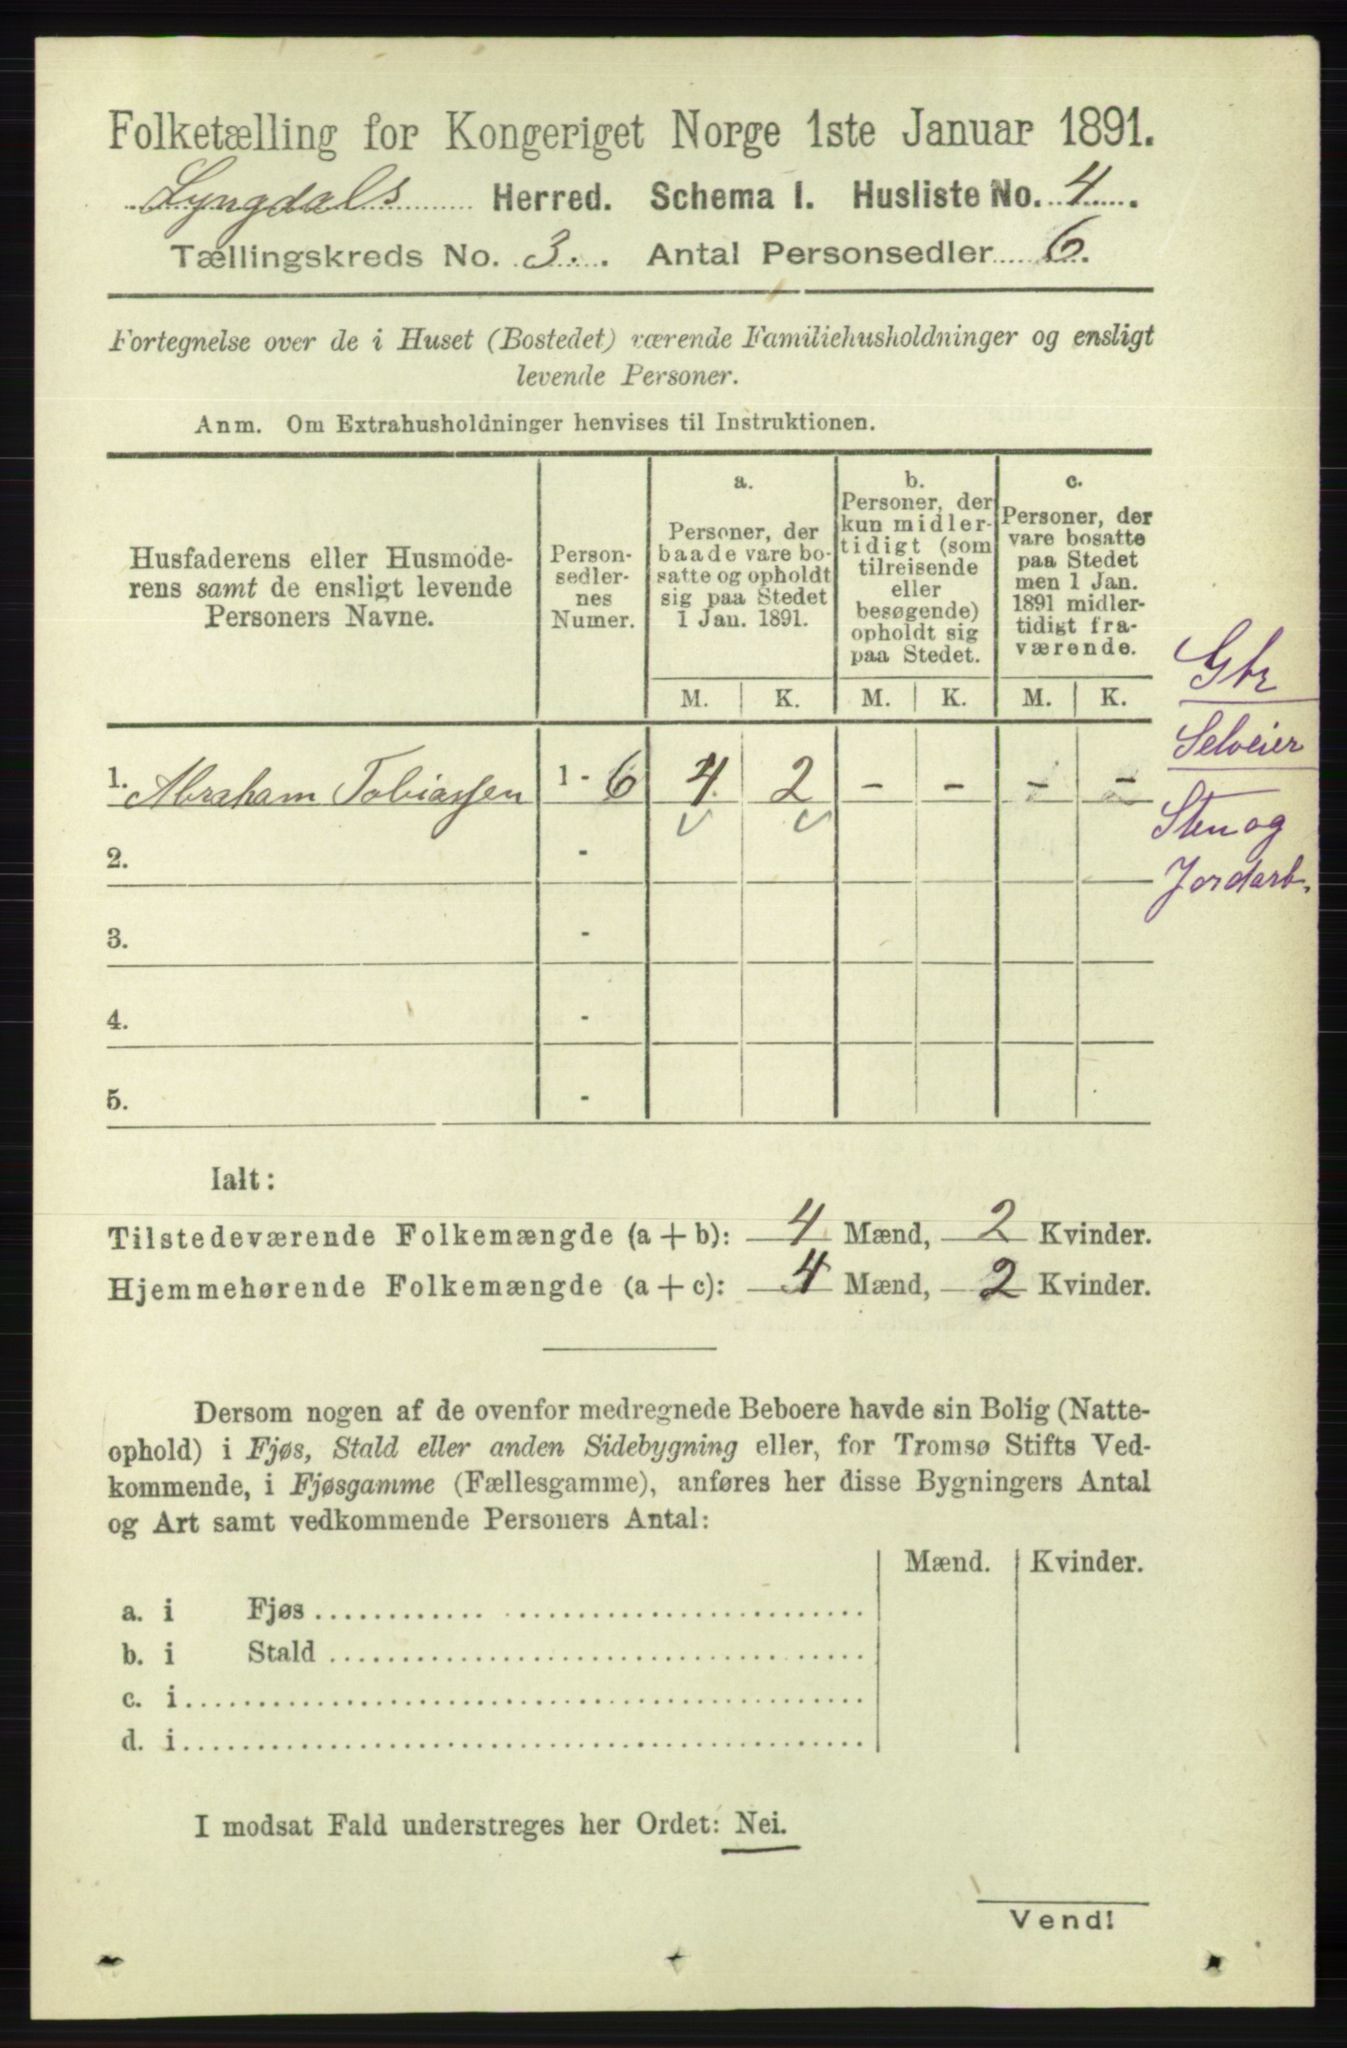 Folketælling for Kongeriget Norge 1ste Januar 1891.
Lyngdals Herred. Schema I. Husliste No. 4.
Tællingskreds No. 3. Antal Personsedler 6.
Fortegnelse over de i Huset (Bostedet) værende Familiehusholdninger og ensligt
levende Personer.
Anm. Om Extrahusholdninger henvises til Instruktionen.
Husfaderens eller Husmode-
rens samt de ensligt levende
Personers Navne.
Person-
sedler-
nes
Numer.
a.
Personer, der
baade vare bo-
satte og opholdt
sig paa Stedet
1 Jan. 1891.
b.
Personer, der
kun midler-
tidigt (som
tilreisende
eller
besøgende)
opholdt sig
paa Stedet.
c.
Personer, der
vare bosatte
paa Stedet
men 1 Jan.
1891 midler-
tidigt fra-
værende.
M. K. M. K. M. K.
1. Abraham Tobiassen 1 - 6 4 2 - - - -
2. -
3. -
4. -
5. -
Gbr
Selveier
Sten og
Jordarb.
Ialt:
Tilstedeværende Folkemængde (a + b): 4 Mænd, 2 Kvinder.
Hjemmehørende Folkemængde (a + c): 4 Mænd, 2 Kvinder.
Dersom nogen af de ovenfor medregnede Beboere havde sin Bolig (Natte-
ophold) i Fjøs, Stald eller anden Sidebygning eller, for Tromsø Stifts Ved-
kommende, i Fjøsgamme (Fællesgamme), anføres her disse Bygningers Antal
og Art samt vedkommende Personers Antal:
Mænd. Kvinder.
a. i Fjøs
b. i Stald
c. i
d. i
I modsat Fald understreges her Ordet: Nei.
Vend!